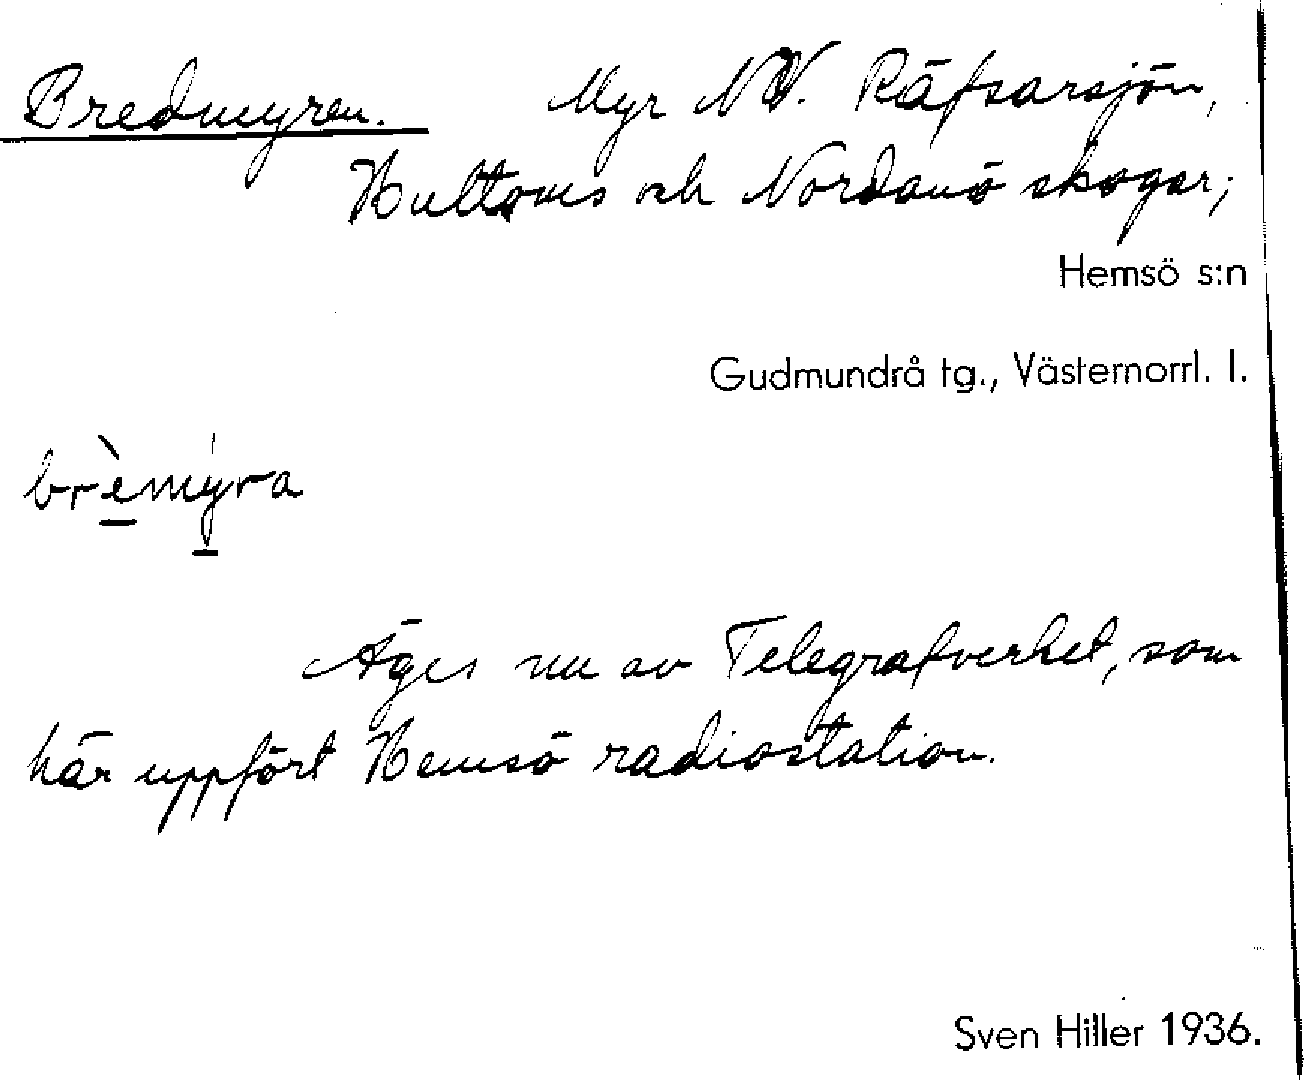 Bredmyren. Myr NV. Räfsarsjön,
Hultoms och Nordanö skogar;
Hemsö s:n
Gudmundrå tg., Västernorrl. l.
brèmyra
Äges nu av Telegrafverket, som
här uppfört Hemsö radiostation.
Sven Hiller 1936.